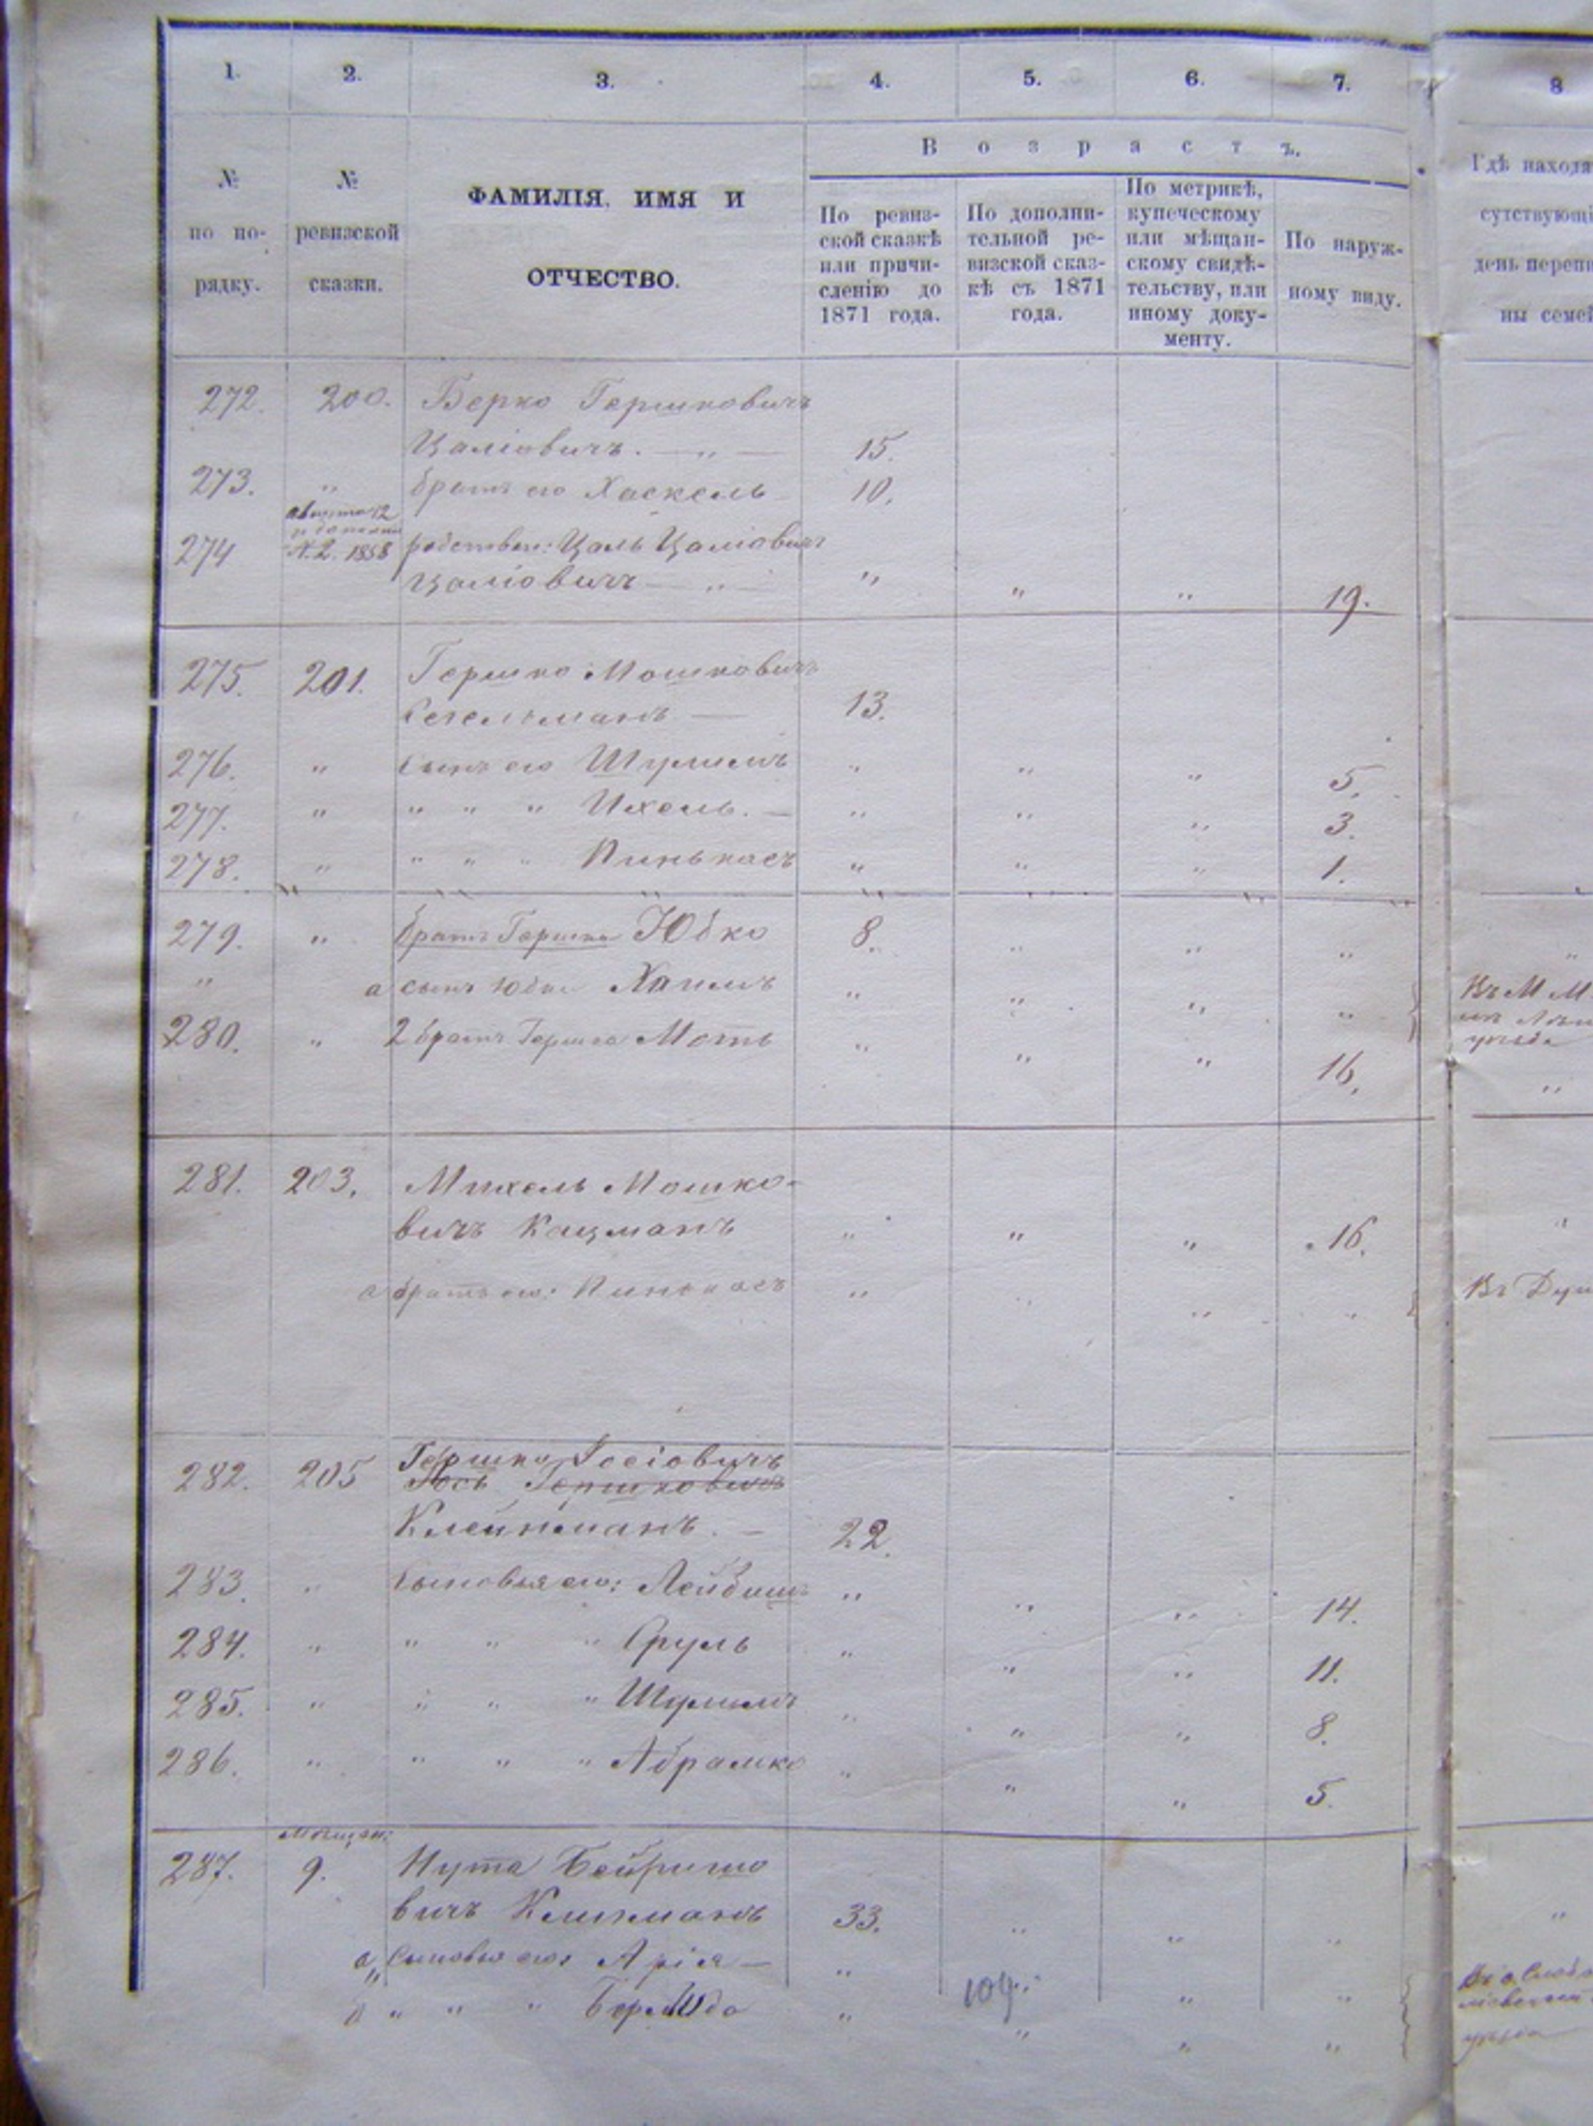 1. 2. 3. 4. 5. 6. 7. 8
В о з р а с т ъ.
№ по по-рядку.
№ ревизской сказки.
ФАМИЛІЯ, ИМЯ И
ОТЧЕСТВО.
По ревиз-
ской сказкѣ
или причи-
сленію до
1871 года.
По дополни-
тельной ре-
визской сказ-
кѣ съ 1871
года.
По метрикѣ,
купеческому
или мѣщан-
скому свидѣ-
тельству, или
иному доку-
менту.
По наруж-
ному виду.
Гдѣ находя
сутствующі
день перепи
ны семей
272. 200. Берко Гершковичъ
Цаліовичъ. — „ — 15.
273. „ братъ его Хаскель 10.
августа 12
№ 2. 1858
274 родствен: Цаль Цаліовичъ
Цаліовичъ — „ — „ „ „ 19.
275. 201. Гершко Мошковичъ
13.
276. „ сынъ его Шулимъ „ „ „ 5.
277. „ „ „ „ Ихель. — „ „ „ 3.
278. „ „ „ „ Пинькасъ „ „ „ 1.
279. „ братъ Гершка Юдко 8. „ „ „ „
„ а сынъ Юдки Хаимъ „ „ „ „ Въ М М
280. „ 2 братъ Гершка Моть „ „ „ 16. „
уѣзда
281. 203. Михель Мошко-
вичъ Кацманъ „ „ „ 16. „
а братъ его: Пинькасъ „ „ „ „ Въ
282. 205 Гершко Іосіовичъ
Іось Гершковичъ
Клейнманъ. — 22.
283. „ сыновья его: Лейбишъ „ „ „ 14.
284. „ „ „ „ Сруль „ „ „ 11.
285. „ „ „ „ Шулимъ „ „ „ 8.
286. „ „ „ „ Абрамко „ „ „ 5.
287. 9. Нута Бейришо
вичъ Клинманъ 33. „ „ „ „
а „ сыновья его: Арія — „ „ „ „
109
„ „ „ „ „ „ „
уѣзда